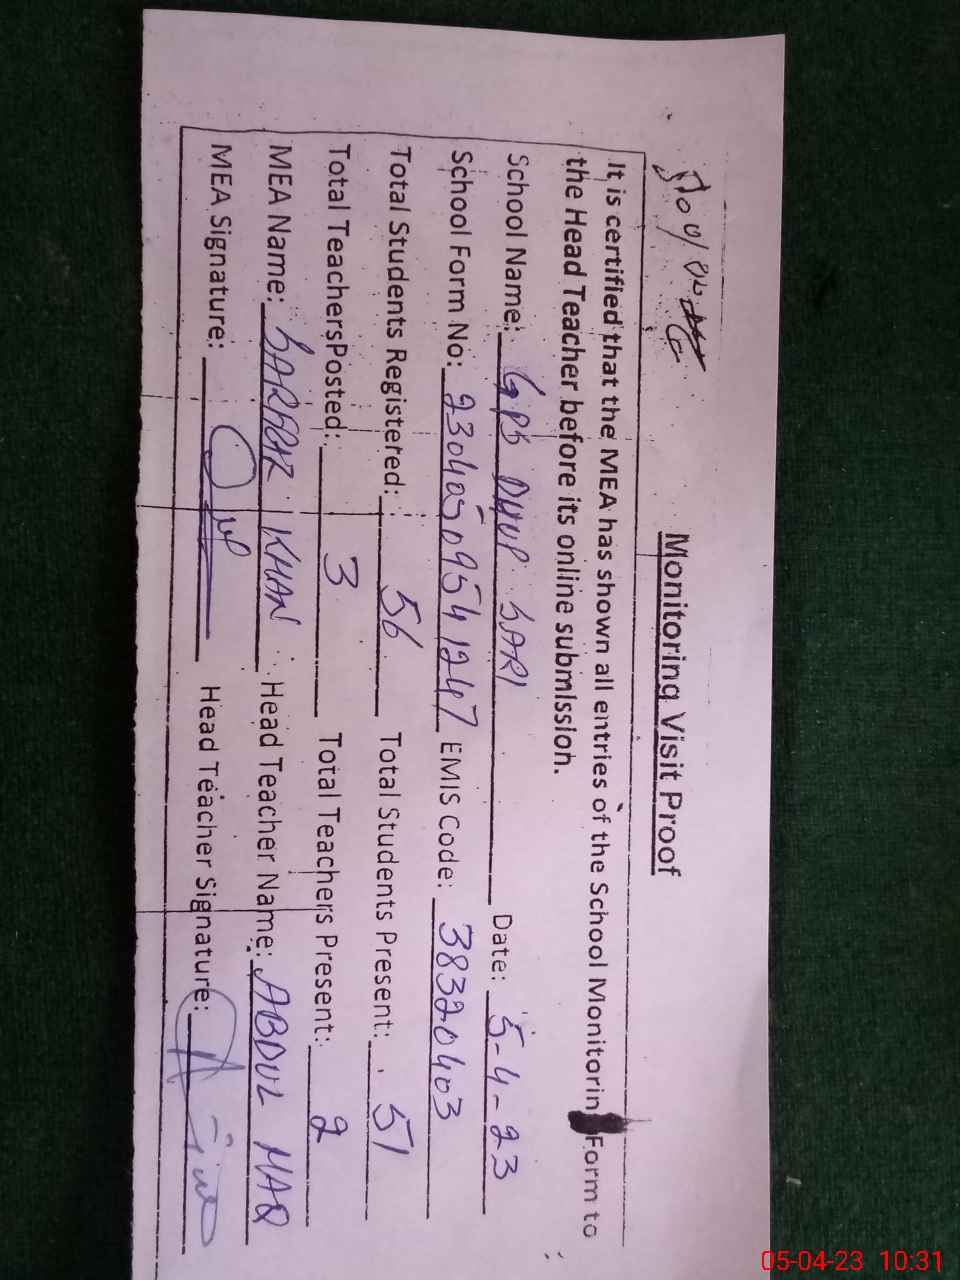 Monitoring Visit Proof
It is certified that the MEA has shown all entries of the School Monitorin Form to
the Head Teacher before its online submission.
School Name: GPS DHUP SARI Date: 5-4-23
School Form No: 23040509541247 EMIS Code: 38320403
Total Students Registered: 56 Total Students Present: 51
Total TeachersPosted: 3 Total Teachers Present: 2
MEA Name: SARFRAZ KHAN Head Teacher Name: ABDUL HAQ
MEA Signature: Head Teacher Signature:
05-04-23 10:31